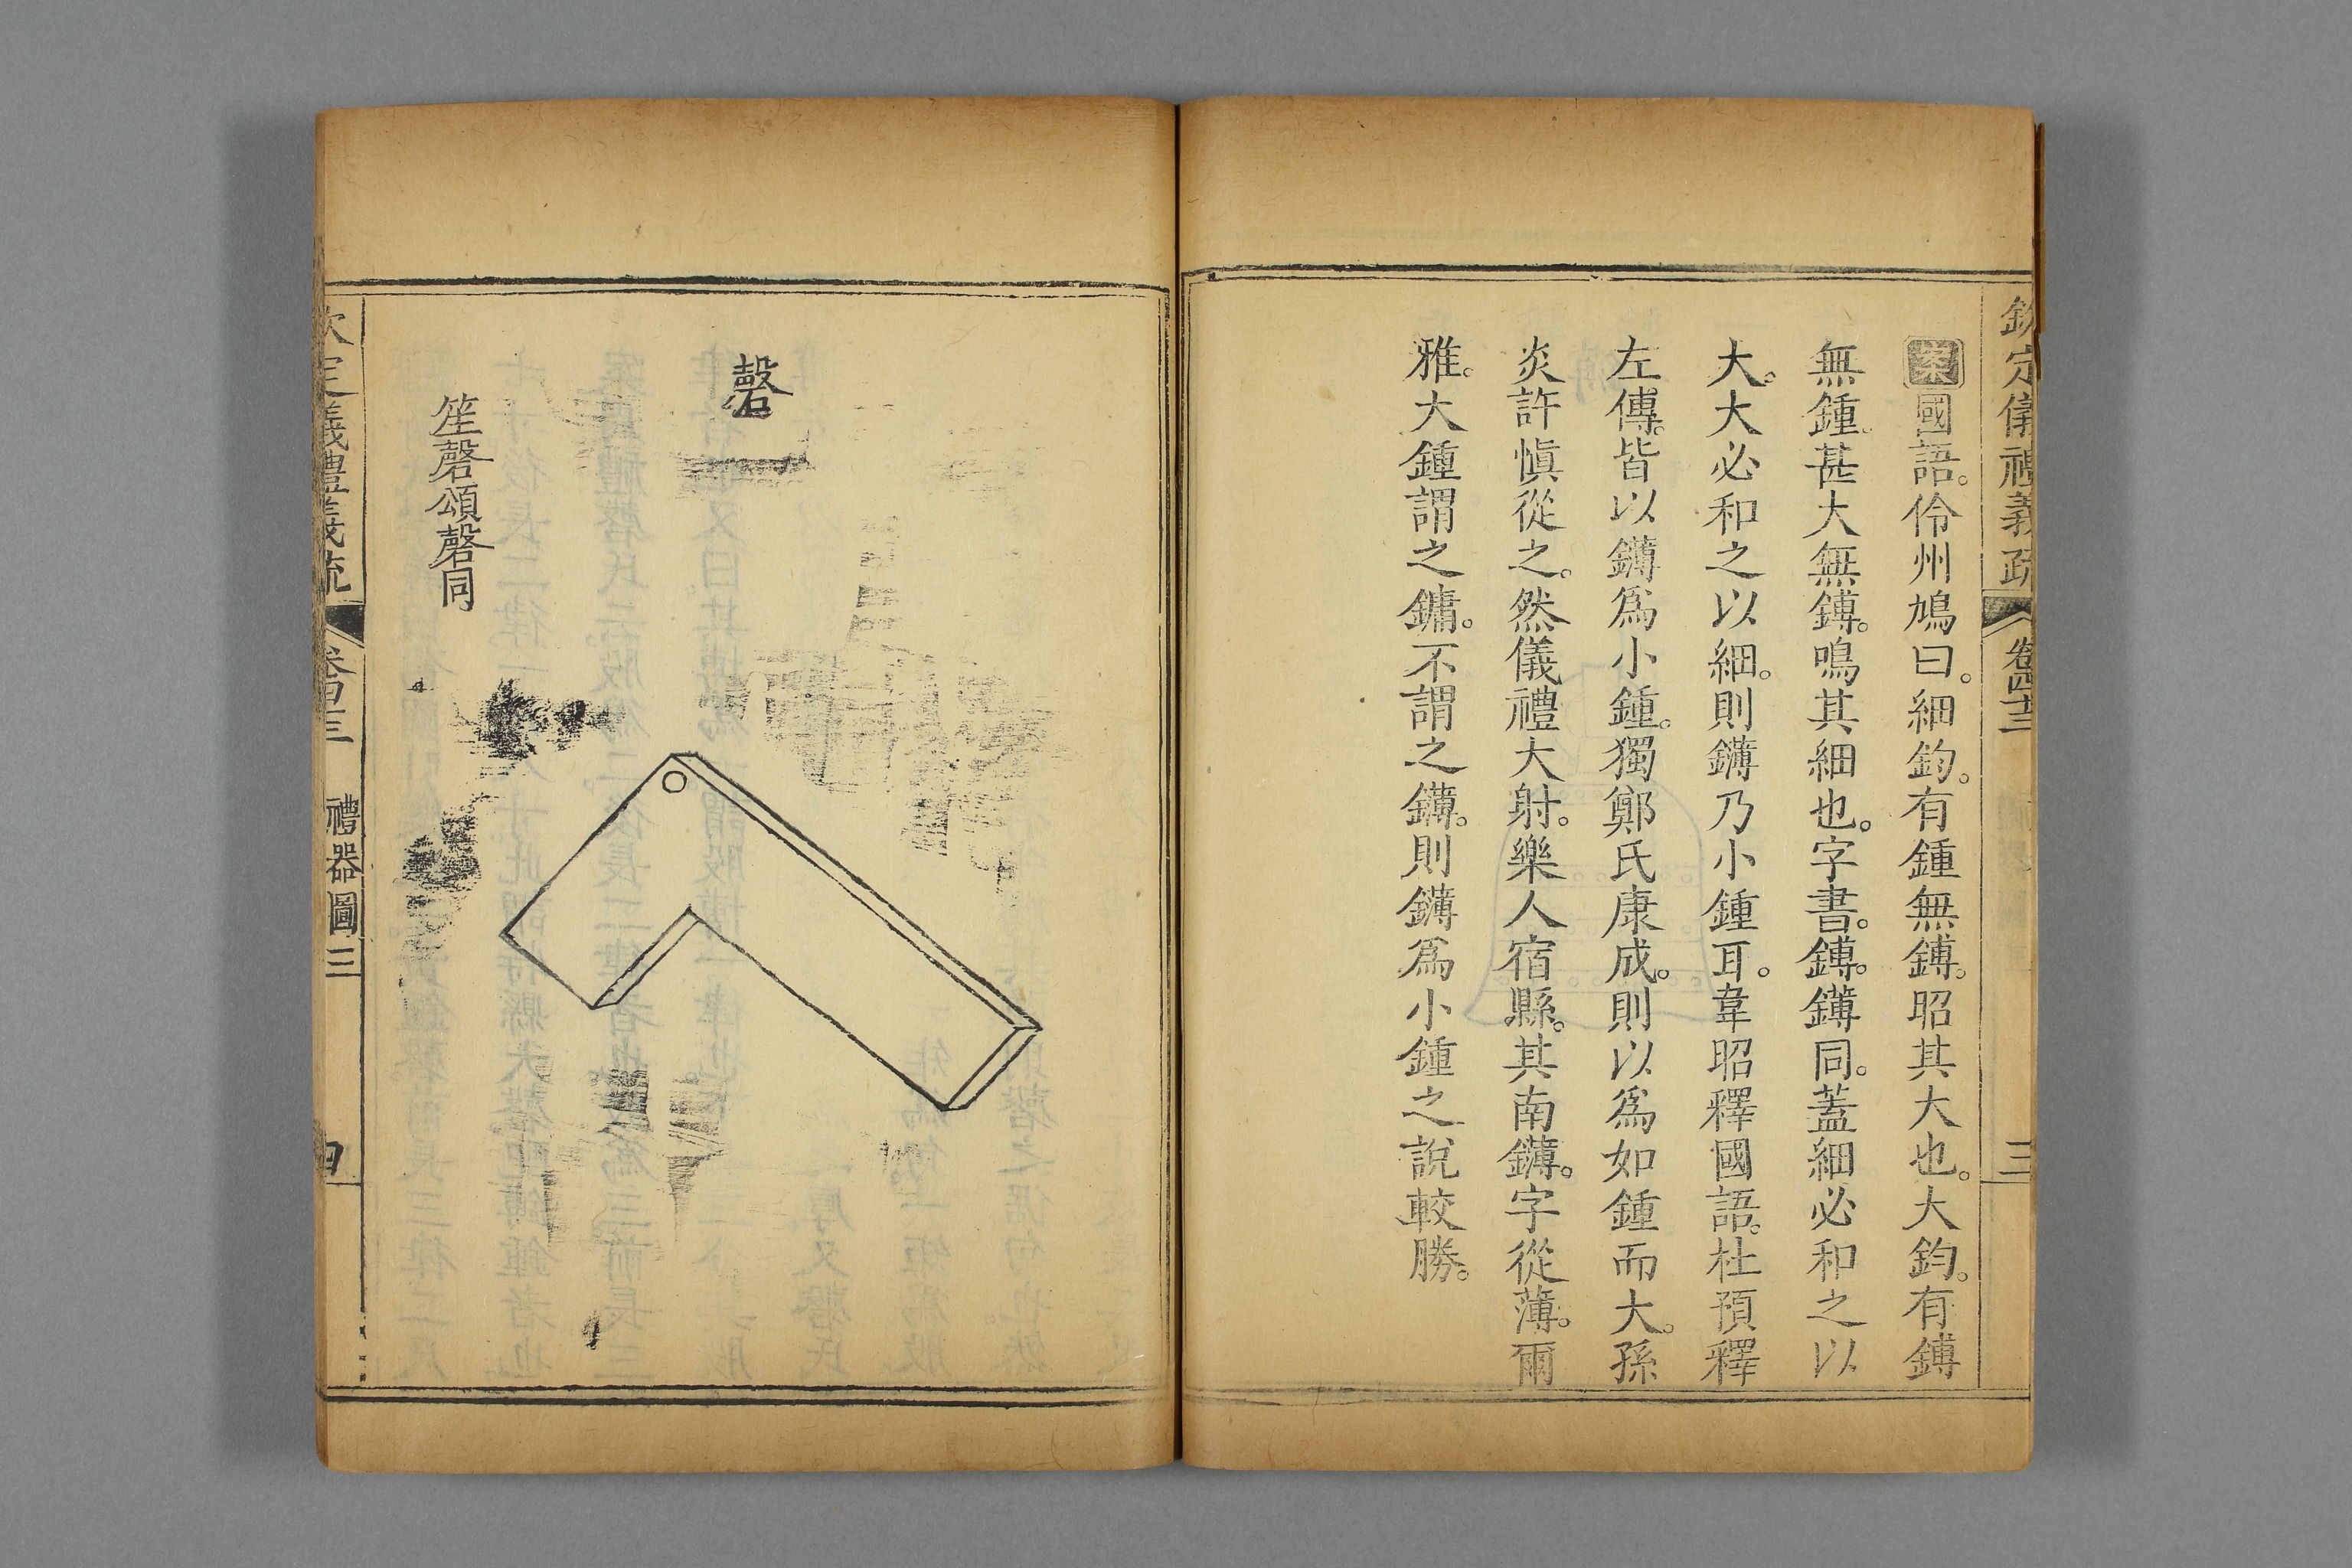 欽定儀禮義疏 卷四十三 三
案國語。伶州鳩曰。細鈞。有鍾無鎛。昭其大也。大鈞。有鎛
無鍾。甚大無鎛。鳴其細也。字書。鎛。鑮同。蓋細必和之以
大。大必和之以細。則鑮乃小鍾耳。韋昭釋國語。杜預釋
左傳。皆以鑮爲小鍾。獨鄭氏康成。則以爲如鍾而大。孫
炎許愼從之。然儀禮大射。樂人宿縣。其南鑮。字從薄。爾
雅。大鍾謂之鏞。不謂之鑮。則鑮爲小鍾之說較勝。
磬
笙磬頌磬同
欽定義禮義疏 卷四十三 禮器圖三 四